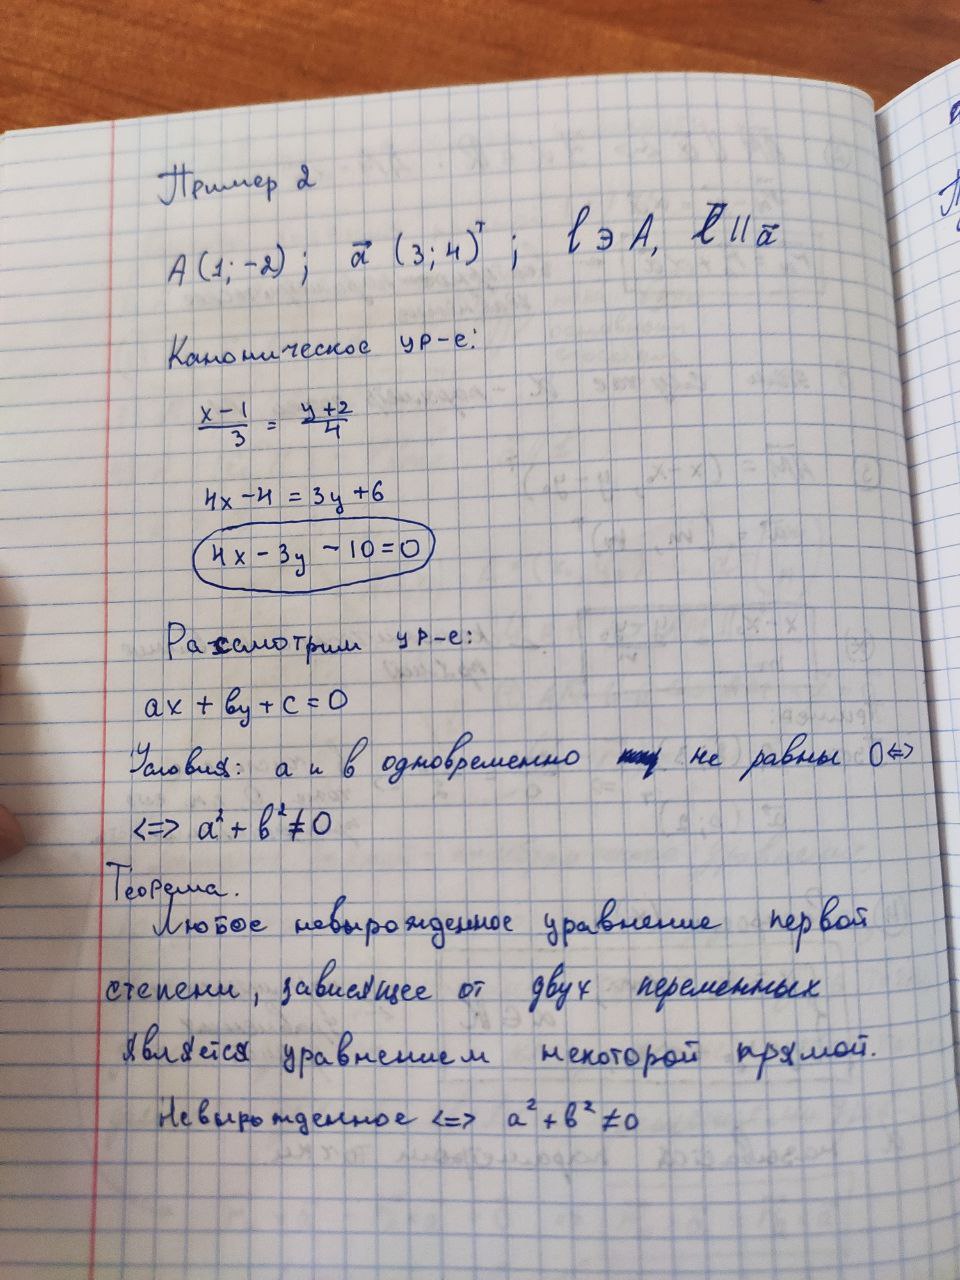 Пример 2
A (1; -2) ; a⃗ (3; 4)ᵀ ; l ∋ A, l⃗ || a⃗
Каноническое ур-е:
(x - 1)/3 = (y + 2)/4
4x - 4 = 3y + 6
4x - 3y - 10 = 0
Рассмотрим ур-е:
ax + by + c = 0
Условия: a и b одновременно не равны 0 <=>
<=> a² + b² ≠ 0
Теорема.
Любое невырожденное уравнение первой
степени, зависящее от двух переменных
является уравнением некоторой прямой.
Невырожденное <=> a² + b² ≠ 0